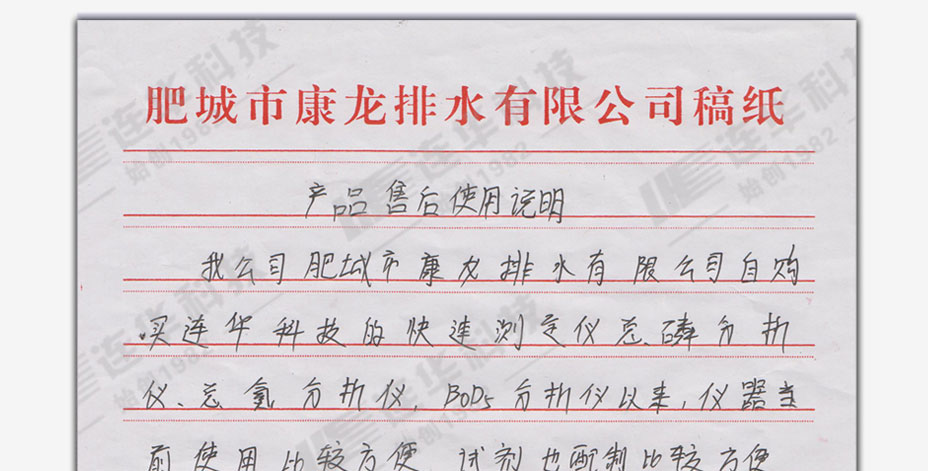 肥城市康龙排水有限公司稿纸
产品售后使用说明
我公司肥城市康龙排水有限公司自购
买连华科技的快速测定仪总磷分析
仪、总氮分析仪,BOD5分析仪以来,仪器当
前使用比较方便,试剂也配制比较方便
连华科技
始创1982